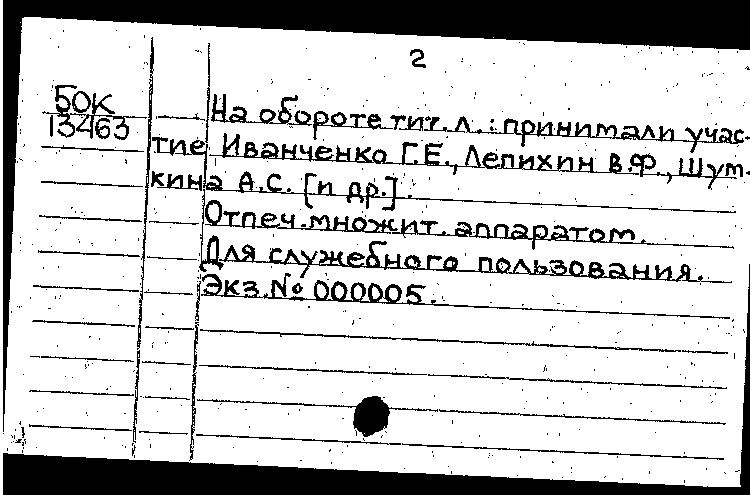 2
БОК
13463
На обороте тит. л. : принимали учас-
тие Иванченко Г.Е., Лепихин В.Ф., Шут-
кина А.С. [и др.].
Отпеч. множит. аппаратом.
Для служебного пользования.
Экз. № 000005.